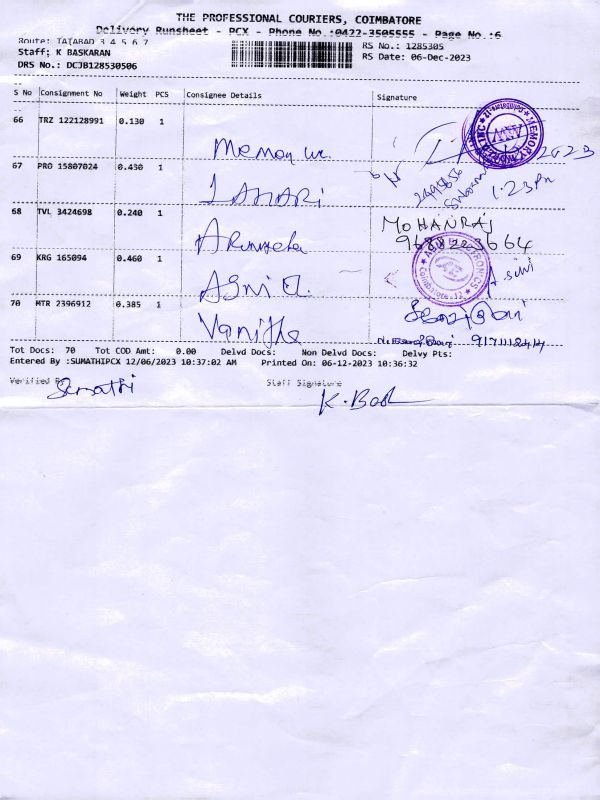 THE PROFESSIONAL COURIERS, COIMBATORE
Delivery Runsheet - PCX - Phone No.:0422-3505555 - Page No.:6
Route: TATABAD 3 4 5 6 7
RS No.: 1285305
Staff; K BASKARAN
RS Date: 06-Dec-2023
DRS No.: DCJB128530506
S No Consignment No Weight PCS Consignee Details Signature
66 TRZ 122128991 0.130 1
Memory
2023
67 PRO 15807024 0.430 1
LAHARI
1.23 Pm
68 TVL 3424698 0.240 1
MOHANRAJ
69 KRG 165094 0.460 1
Agni
70 MTR 2396912 0.385 1
Vanitha
Tot Docs: 70 Tot COD Amt: 0.00 Delvd Docs: Non Delvd Docs: Delvy Pts:
Entered By :SUMATHIPCX 12/06/2023 10:37:02 AM Printed On: 06-12-2023 10:36:32
Verified By
Sumathi
Staff Signature
K. Bask